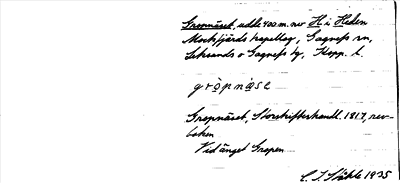 Gropnäset, udde 400 m. nv H i Heden
Mockfjärds kapellag, Gagnefs sn,
Leksands o Gagnefs tg, Kopp. l.
gròpnäse
Gropnäset, Storskifteshandl. 1819, rev-
boken
Vid änget Gropen
C. I. Ståhle 1935